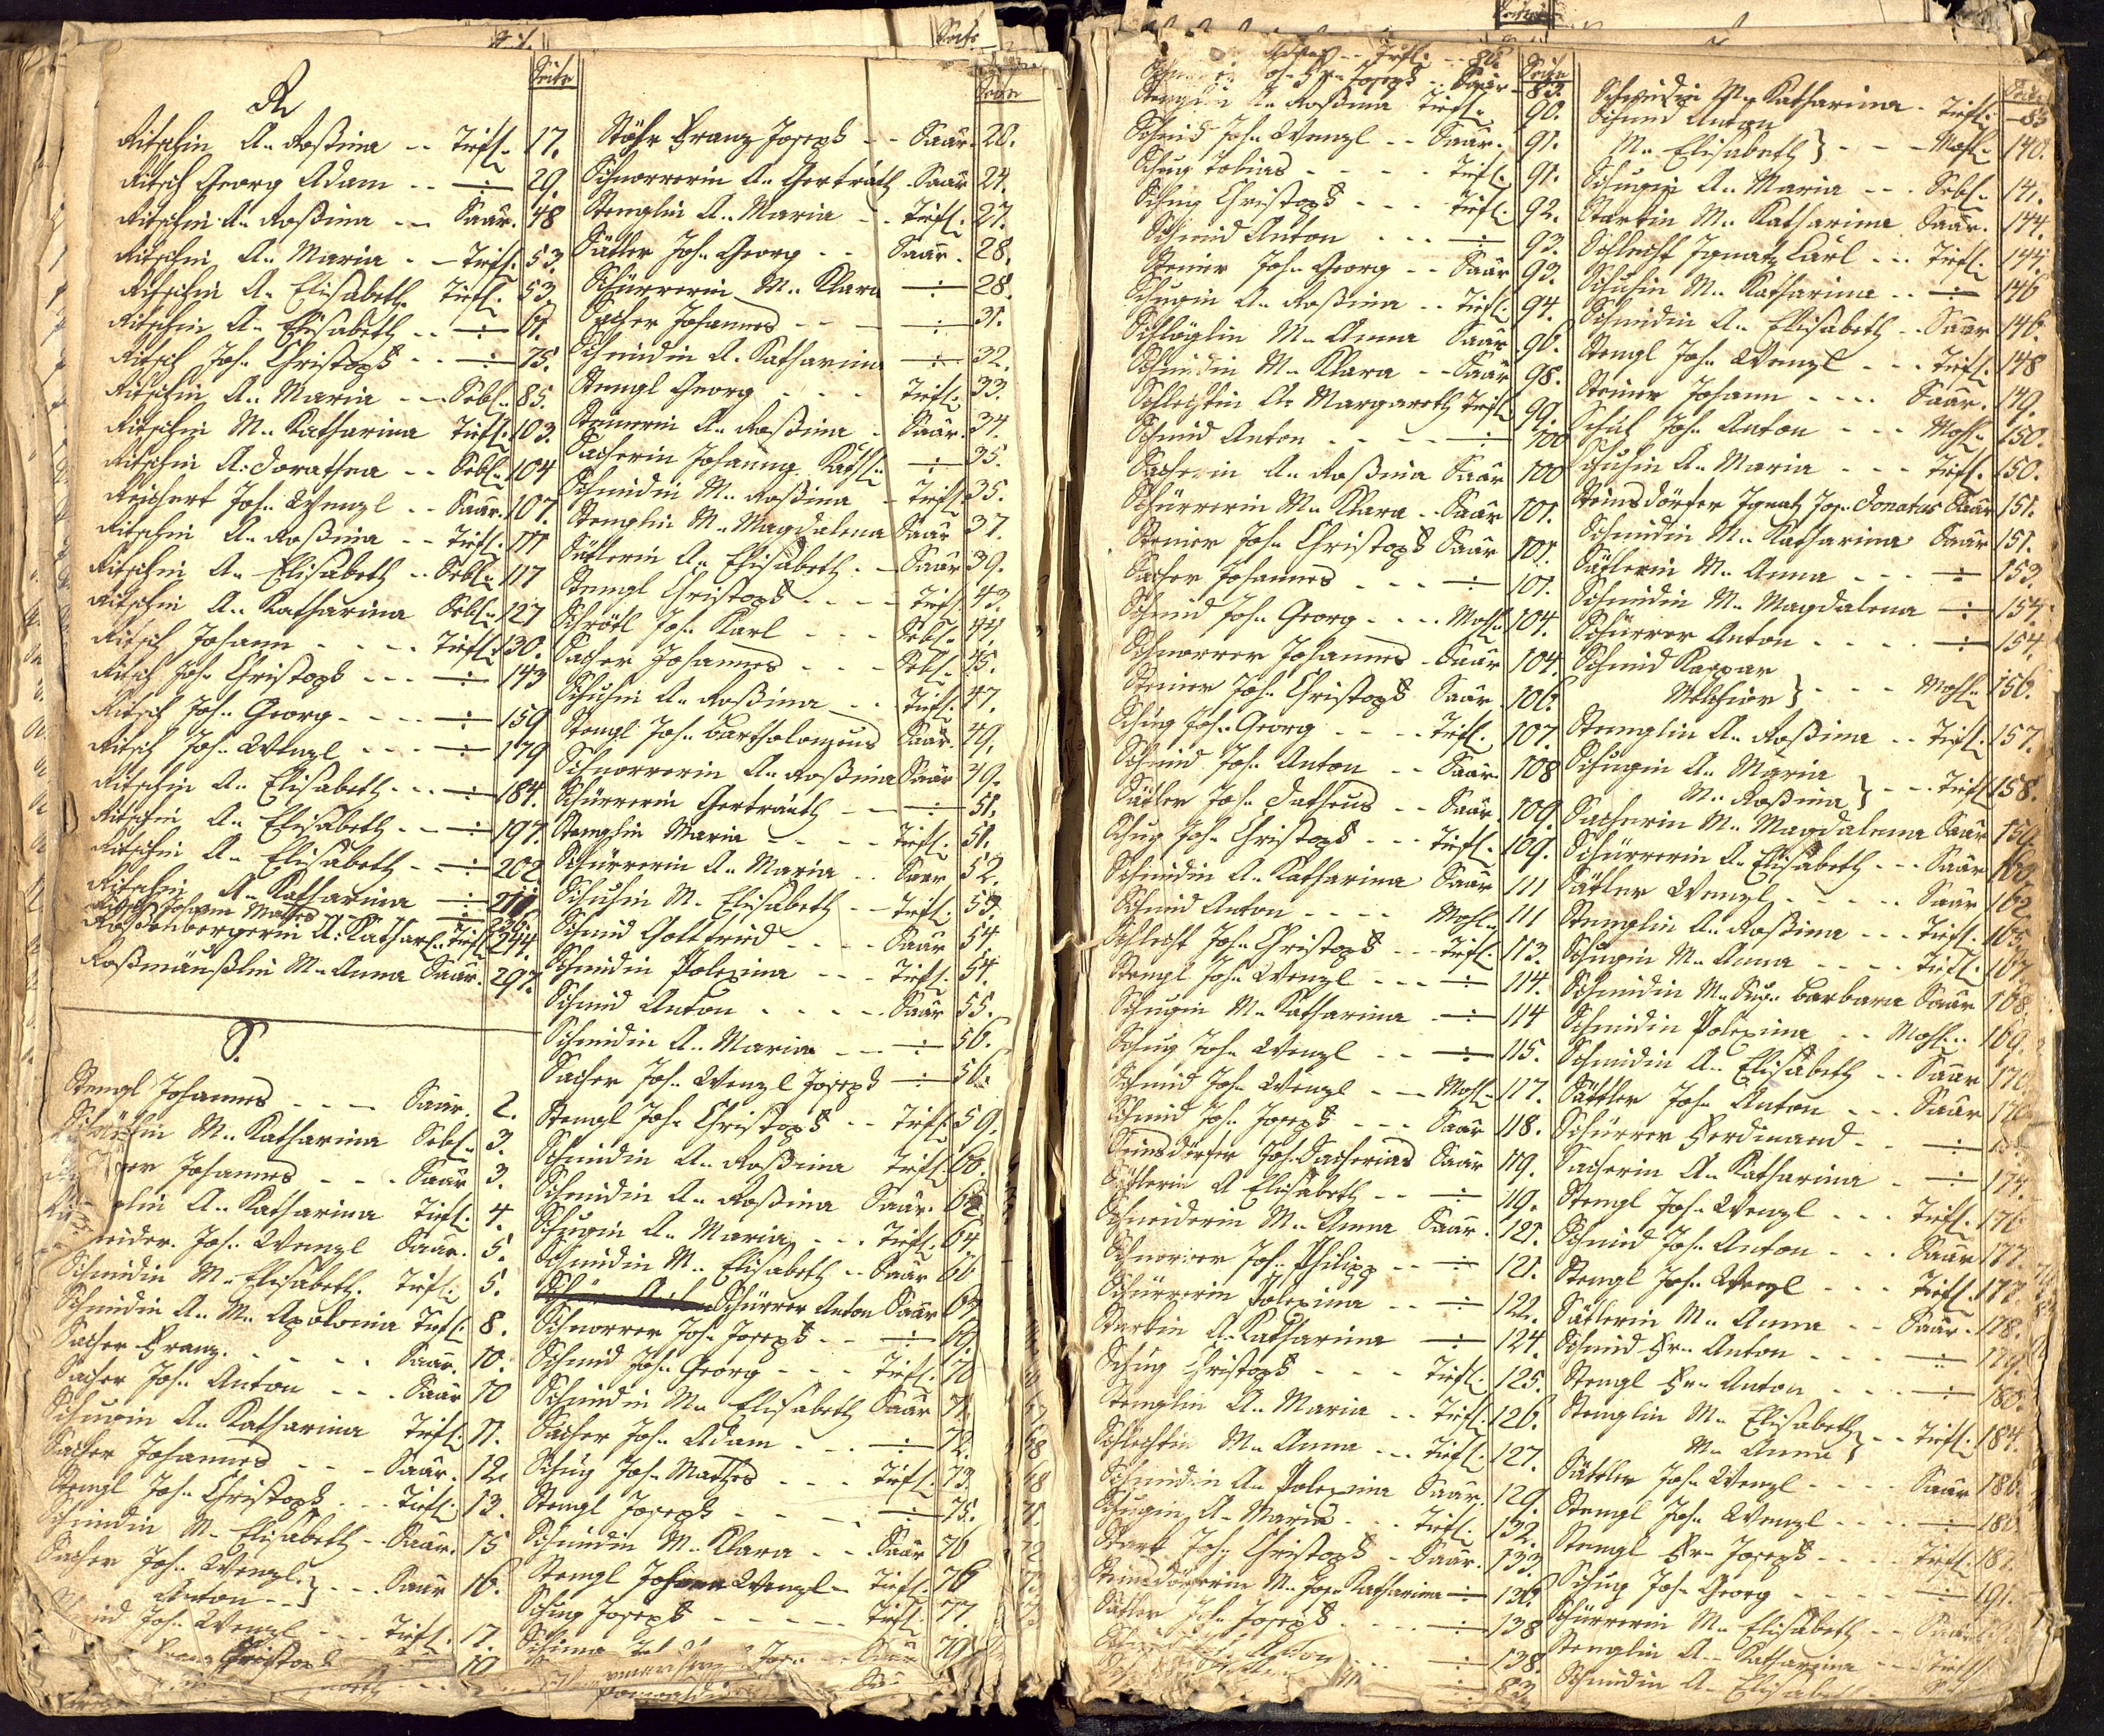 R
Seite
Ritschin A.. Roßina -- Tiefl. 17.
Ritsch Georg Adam -- ÷ 29.
Ritschin A.. Roßina -- Saar. 48
Ritschin A.. Maria -- Tiefl. 53.
Ritschin A.. Elisabeth. Tiefl. 53.
Ritschin A.. Elisabeth -- ÷
Ritsch Joh.. Christoph -- ÷ 75.
Ritschin A.. Maria -- Sebl. 85.
Ritschin M.. Katharina Tiefl. 103.
Ritschin A: Dorathea -- Sebl. 104
Reichert Joh.. Wenzl -- Saar. 107.
Ritschin A.. Roßina -- Tiefl. 111
Ritschin A.. Elisabeth -- Sebl. 117
Ritschin A.. Katharina Sebl. 127
Ritsch Johann - - - Tiefl. 130.
Ritsch Joh.. Christoph --- ÷ 143
Ritsch Joh.. Georg ---- ÷ 159
Ritsch Joh.. Wenzl --- ÷ 179
Ritschin A.. Elisabeth --- ÷ 184.
Ritschin A.. Elisabeth --- ÷ 197.
Ritschin A.. Elisabeth -- ÷ 202
Ritschin A.. Katharina ÷
Ritsch Johann
Roßenbergerin A: Kathar. Tiefl. 244.
Roßmäußlin M.. Anna Saar. 297.
S.
Stengl Johannes --- Saar. 2.
M.. Katharina Sebl. 3.
Johannes --- Saar 3.
A.. Katharina Tiefl. 4.
Joh.. Wenzl Saar. 5.
Schmidin M.. Elisabeth. Tiefl. 5.
Schmidin A.. M.. Apolonia Tiefl. 8.
Sacher Franz - - - Saar. 10.
Sacher Joh.. Anton --- Saar 10
Schugin A.. Katharina Tiefl. 11.
Sacher Johannes --- Saar. 12.
Stengl Joh.. Christoph --- Tiefl. 13.
Schmidin M.. Elisabeth -- Saar. 15
Sacher Joh.. Wenzl } --- Saar 16.
Anton
Joh.. Wenzl --- Tiefl. 17.
Christoph
Seite
Stöhr Franz Joseph -- Saar. 20.
Schnorrerin A.. Gertrauth Saar 24.
Stenglin A.. Maria -- Tiefl. 27.
Sätler Joh.. Georg -- Saar. 28.
Schürrerin M.. Klara ÷ 28.
Sacher Johannes --- ÷ 31.
Schmidin A.. Katharina ÷ 32.
Stengl Georg - - - Tiefl. 33.
Steinerin A.. Roßina - Saar. 34.
Sacherin Johanna Kath.. ÷ 35.
Schmidin M.. Roßina - Tiefl. 35.
Stenglin M.. Magdalena Saar 37.
Sätlerin A.. Elisabeth -- Saar 39.
Stengl Christoph ---- Tiefl. 43.
Schrötl Joh.. Karl --- Sebl. 44.
Sacher Johannes --- Sebl. 45.
Schuhin A.. Roßina -- Tiefl. 47.
Stengl Joh.. Bartholomeus Saar. 49.
Schnorrerin A.. Roßina Saar 49.
Schürrerin Gertrauth -- ÷ 51.
Stenglin Maria - - - Tiefl. 51.
Schürrerin A.. Maria -- Saar 52.
Schuhin M.. Elisabeth -- Tiefl. 53.
Schmid Gottfried ---- Saar 54.
Schmidin Polexina --- Tiefl. 54.
Schmid Anton ----- Saar 55.
Schmidin A.. Maria --- ÷ 56.
Sacher Joh.. Wenzl Joseph ÷ 56.
Stengl Joh.. Christoph -- Tiefl. 59.
Schmidin A.. Roßina Tiefl. 60.
Schmidin A.. Roßina Saar. 62
Schugin A.. Maria --- Tiefl. 64.
Schmidin M.. Elisabeth -- Saar 66
Schürrer Anton Saar 67
Schnorrer Joh.. Joseph -- ÷ 69.
Schmid Joh.. Georg --- Tiefl. 70
Schmidin M.. Elisabeth Saar 71.
Sacher Joh.. Adam --- ÷ 72.
Schug Joh.. Mathes --- Tiefl. 73.
Stengl Joseph - - - ÷ 75.
Schmidin M.. Klara -- Saar 76
Stengl Johann Wenzl -- Tiefl. 76
Schug Joseph ----- Tiefl. 77.
Seite
A.. Roßina Tiefl. 90.
Schmid Joh.. Wenzl -- Saar. 91.
Schug Tobias - - - - Tiefl. 91.
Schug Christoph --- Tiefl. 92.
Schmid Anton --- ÷ 93.
Steiner Joh.. Georg -- Saar 93.
Schugin A.. Roßina -- Tiefl. 94.
Schlöglin M.. Anna Saar 96.
Schmidin M.. Klara -- Saar 98.
Schlechtin A.. Margareth Tiefl. 99.
Schmid Anton ---- ÷ 100
Sacherin A.. Roßina Saar 100
Schürrerin M.. Klara -- Saar 101.
Steiner Joh.. Christoph Saar 101.
Sacher Johannes --- ÷ 101.
Schmid Joh.. Georg ---- Mohl. 104.
Schnorrer Johannes - Saar 104.
Steiner Joh.. Christoph Saar 106.
Schug Joh.. Georg ---- Tiefl. 107.
Schmid Joh.. Anton -- Saar. 108
Sätler Joh.. Datheus -- Saar. 109.
Schug Joh.. Christoph --- Tiefl. 109.
Schmidin A.. Katharina Saar 111
Schmid Anton ---- Mohl. 111
Schlecht Joh.. Christoph -- Tiefl. 113.
Stengl Joh.. Wenzl --- ÷ 114.
Schugin M.. Katharina ÷ 114
Schug Joh.. Wenzl -- ÷ 115.
Schmid Joh.. Wenzl -- Mohl. 117.
Schmid Joh.. Joseph --- Saar 118.
Steinsdörfer Joh. Zacherias Saar 119.
Sätlerin A Elisabeth -- ÷ 119.
Schneiderin M.. Anna Saar. 121.
Schnorrer Joh.. Philipp -- ÷ 121.
Schürrerin Polexina -- ÷ 122.
Starkin A.. Katharina ÷ 124.
Schug Christoph --- Tiefl. 125.
Stenglin A.. Maria -- Tiefl. 126.
Schlechtin M.. Anna --- Tiefl. 127.
Schmidin A.. Polexina Saar. 129.
Schugin A.. Maria --- Tiefl. 132.
Stark Joh.. Christoph - Saar. 133.
Steinsdörferin M.. Jos.. Katharina ÷
Sätler Joh.. Joseph ---- ÷ 138
Schmidin M.. Katharina - Tiefl. 85
Schmid Anton
M.. Elisabeth } --- Mohl. 140.
Schugin A.. Maria --- Sebl. 141.
Starkin M.. Katharina Saar. 144.
Schlecht Ignatz Carl --- Tiefl. 144.
Schuhin M.. Katharina -- ÷ 146
Schmidin A.. Elisabeth -- Saar 146.
Stengl Joh.. Wenzl --- Tiefl. 148
Steiner Johann ---- Saar. 149.
Schuh Joh.. Anton --- Mohl. 150.
Schuhin A.. Maria --- Tiefl. 150.
Steinsdörfer Ignatz Jos.. Donatus Saar 151.
Schmidin M.. Katharina Saar 151.
Sätlerin M.. Anna --- ÷ 153.
Schmidin M.. Magdalena ÷ 154.
Schürrer Anton ---- ÷ 154.
Schmid Kaspar
Melchior } --- Mohl. 156.
Stenglin A.. Roßina -- Tiefl. 157.
Schugin A.. Maria
M.. Roßina } --- Tiefl. 158.
Sacherin M.. Magdalena Saar 159.
Schürrerin A.. Elisabeth --- Saar 160.
Sätler Wenzl ----- Saar 162
Stenglin A.. Roßina --- Tiefl. 165.
Schugin M.. Anna ---- Tiefl. 167.
Schmidin M.. Barbara Saar 168.
Schmidin Polexina -- Mohl. 169.
Schmidin A.. Elisabeth -- Saar 170.
Sättler Joh.. Anton --- Saar
Schürrer Ferdinand -- ÷
Sacherin A.. Katharina - ÷ 174.
Stengl Joh.. Wenzl --- Tiefl. 176
Schmid Joh.. Anton --- Saar 177.
Stengl Joh.. Wenzl --- Tiefl. 177.
Sätlerin M.. Anna -- Saar. 178.
Schmid Fr.. Anton --- ÷ 179.
Stengl Fr.. Anton --- ÷ 180.
Stenglin M.. Elisabeth
M.. Anna } -- Tiefl. 184.
Sättler Joh.. Wenzl ---- Saar 186.
Stengl Joh.. Wenzl ---- ÷
Stengl Fr.. Joseph ---- Tiefl.
Schug Joh.. Georg ---- ÷ 191.
Schürrerin M.. Elisabeth --
Stenglin A.. Katharina
Schmidin A..